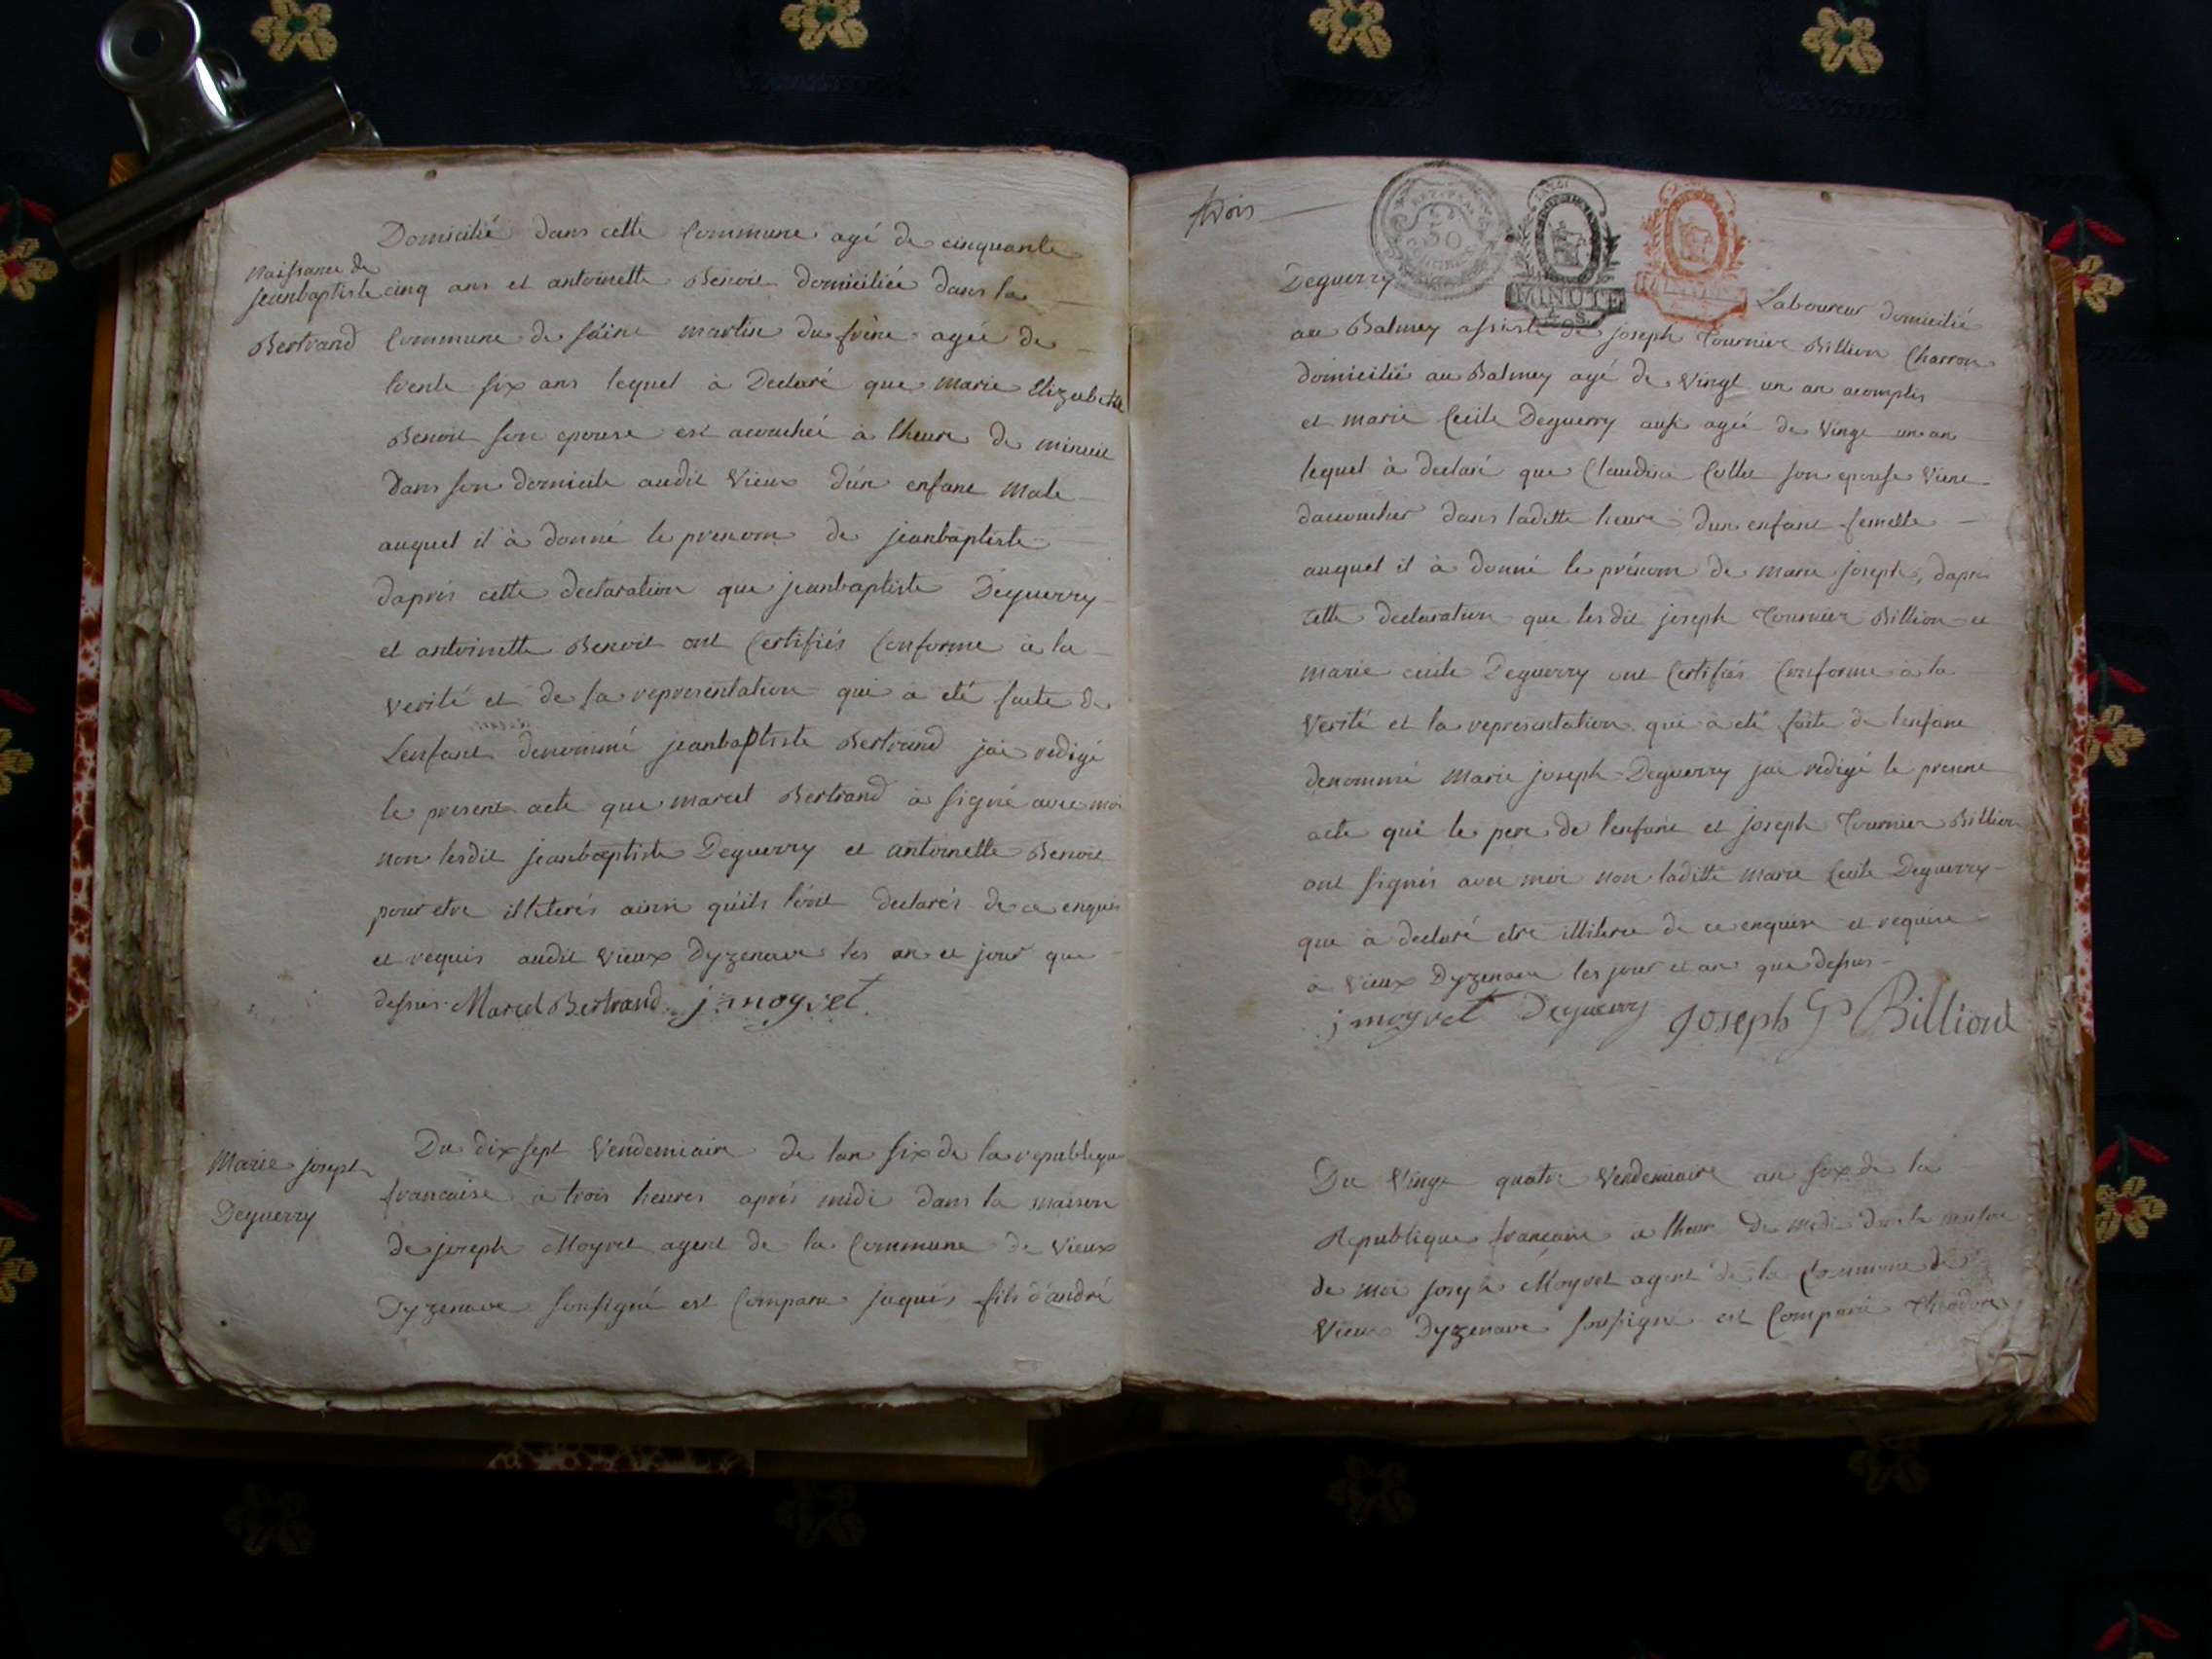 Domicilié dans cette Commune agé de cinquante
Naissance de
jeanbaptiste
Bertrand
cinq ans et antoinette Benoit domiciliée dans la
Commune de saint martin du frêne agée de
trente six ans lequel à Declaré que Marie Elizabeth
Benoit son epouse est acouchée à lheure de minuit
Dans son domicile audit Vieux d'un enfant Male
auquel il à donné le prenom de jeanbaptiste
daprés cette declaration que jeanbaptiste Deguerry
et antoinette Benoit ont Certifiés Conforme à la
verité et de la representation qui à eté faite de
Lenfant denommé jeanbaptiste Bertrand jai redigé
le present acte que marcel Bertrand à signé avec moi
non lesdit jeanbaptiste Deguerry et antoinette Benoit
pour etre illiterés ainsi qu'ils l'ont declarés de ce enquis
et requis audit Vieux Dyzenave les an et jour que
dessus. Marcel Bertrand j moyret
Marie joseph
Deguerry
Du dix sept Vendemiaire de lan six de la republique
francaise à trois heures aprés midi dans la maison
de joseph Moyret agent de la Commune de Vieux
Dyzenave soussigné est Comparu jaques fils d'andré
trois
50
MINUTE
Deguerry Laboureur domicilié
au Balmey assisté de joseph Tournier Billion Charron
domicilié au Balmey agé de Vingt un an acomplis
et marie Cecile Deguerry aussi agée de Vingt un an
lequel à declaré que Claudine Collet son epouse Vient
dacoucher dans laditte heure dun enfant femelle
auquel il à donné le prénom de marie joseph, daprés
cette declaration que lesdit joseph Tournier Billion et
marie cecile Deguerry ont Certifiés Conforme à la
Verité et la representation qui à eté faite de lenfant
denommé Marie joseph Deguerry jai redigé le present
acte que le pere de lenfant et joseph Tournier Billion
ont signés avec moi non laditte marie Cecile Deguerry
que à declaré etre illiteree de ce enquise et requise
à Vieux Dyzenave les jour et an que dessus
j moyret Deguerry joseph Billiout
Du Vingt quatre Vendemiaire an six de la
Republique francaise à lheure de midi dans la maison
de moi joseph Moyret agent de la Commune de
Vieux Dyzenave soussigné est Comparu Theodore